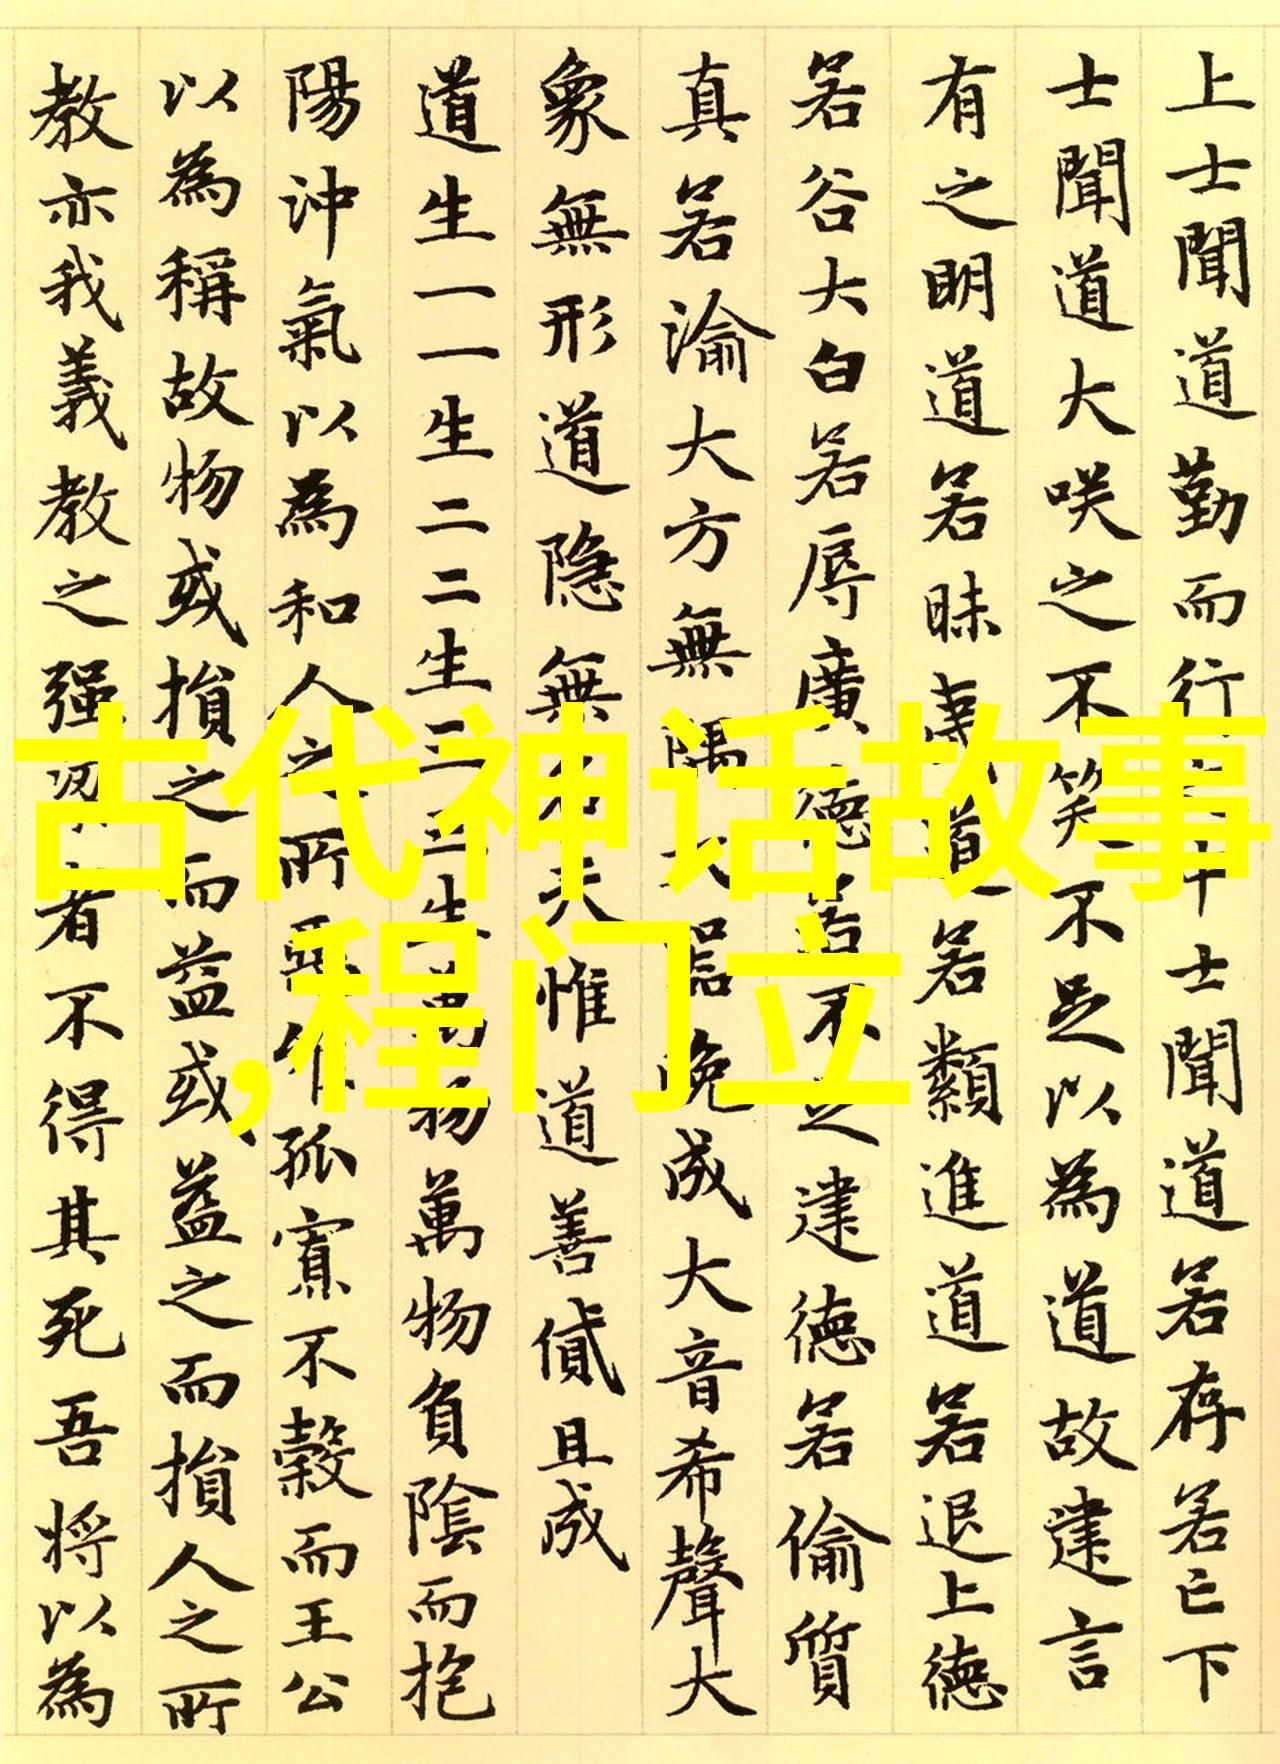 上士聞道勤而行之中士聞道若存若亡下
士聞道大咲之不笑不足以為道故建言
有之明道若昧夷道若纇進道若退上德
若谷大白若辱廣德若不足建德若偷質
真若渝大方無隅大器晚成大音希聲大
象無形道隐無名夫惟道善貸且成
道生一一生二二生三三生萬物萬物負陰而抱
陽沖氣以為和人之所惡惟孤寡不穀而王公
以為稱故物或損之而益或益之而損人之所
教亦我義教之强梁者不得其死吾將以為
古代神话故事
,程门立